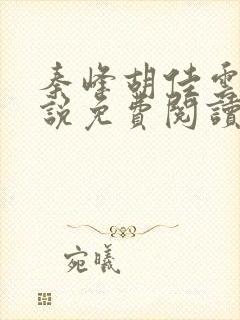 秦峰胡佳雲
說免費閱讀
宛曦